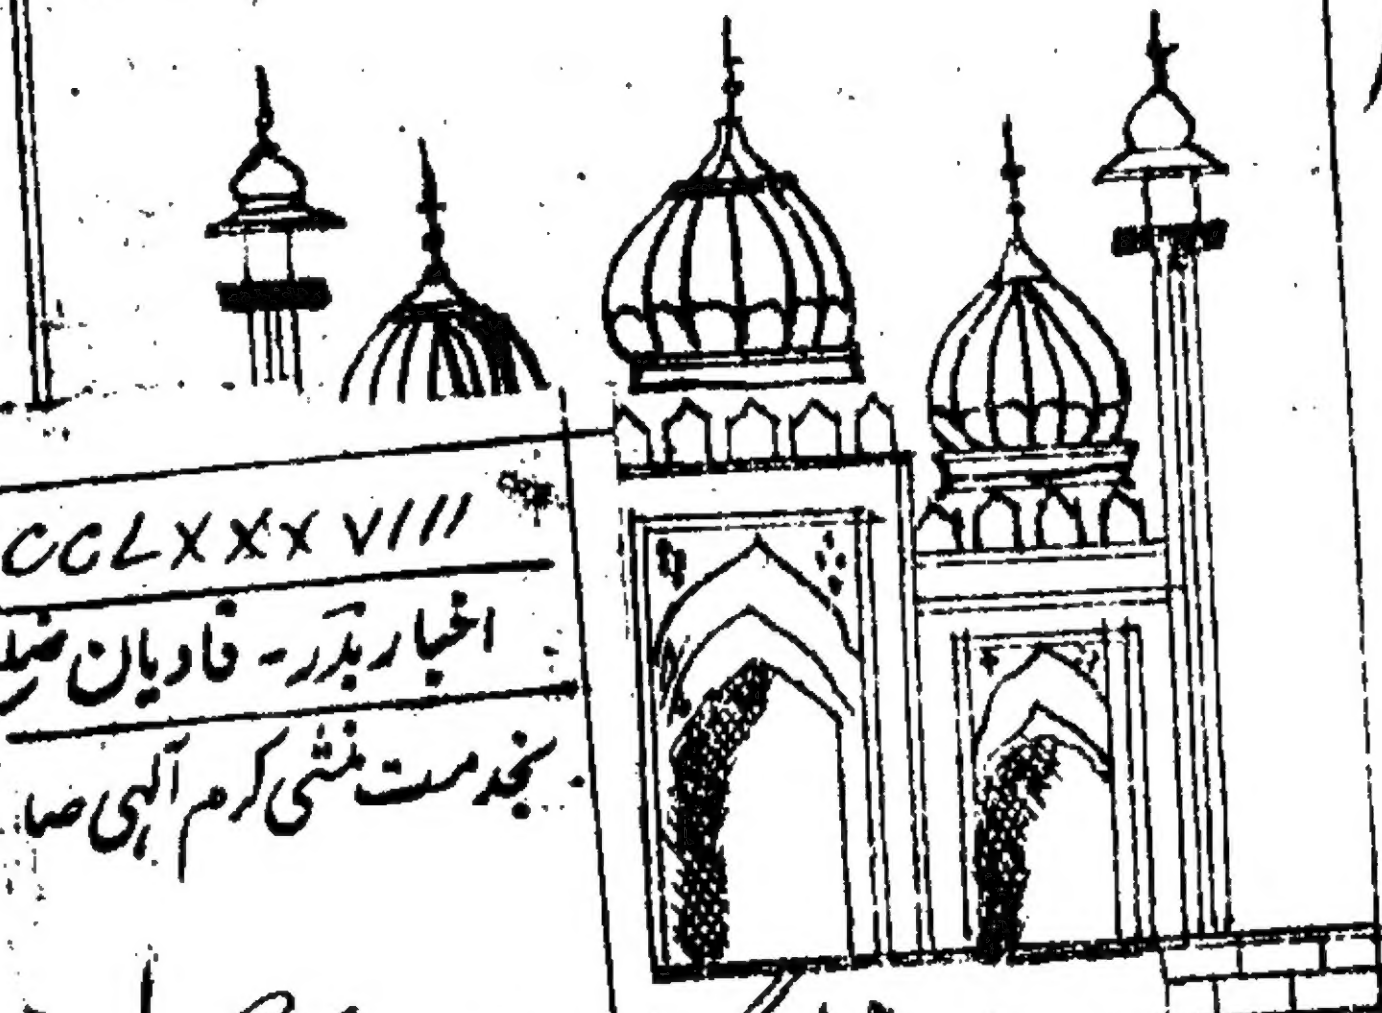 CCLXXXVIII
اخبار بدر - قادیان ضلع
بخدمت منشی کرم آلہی صا